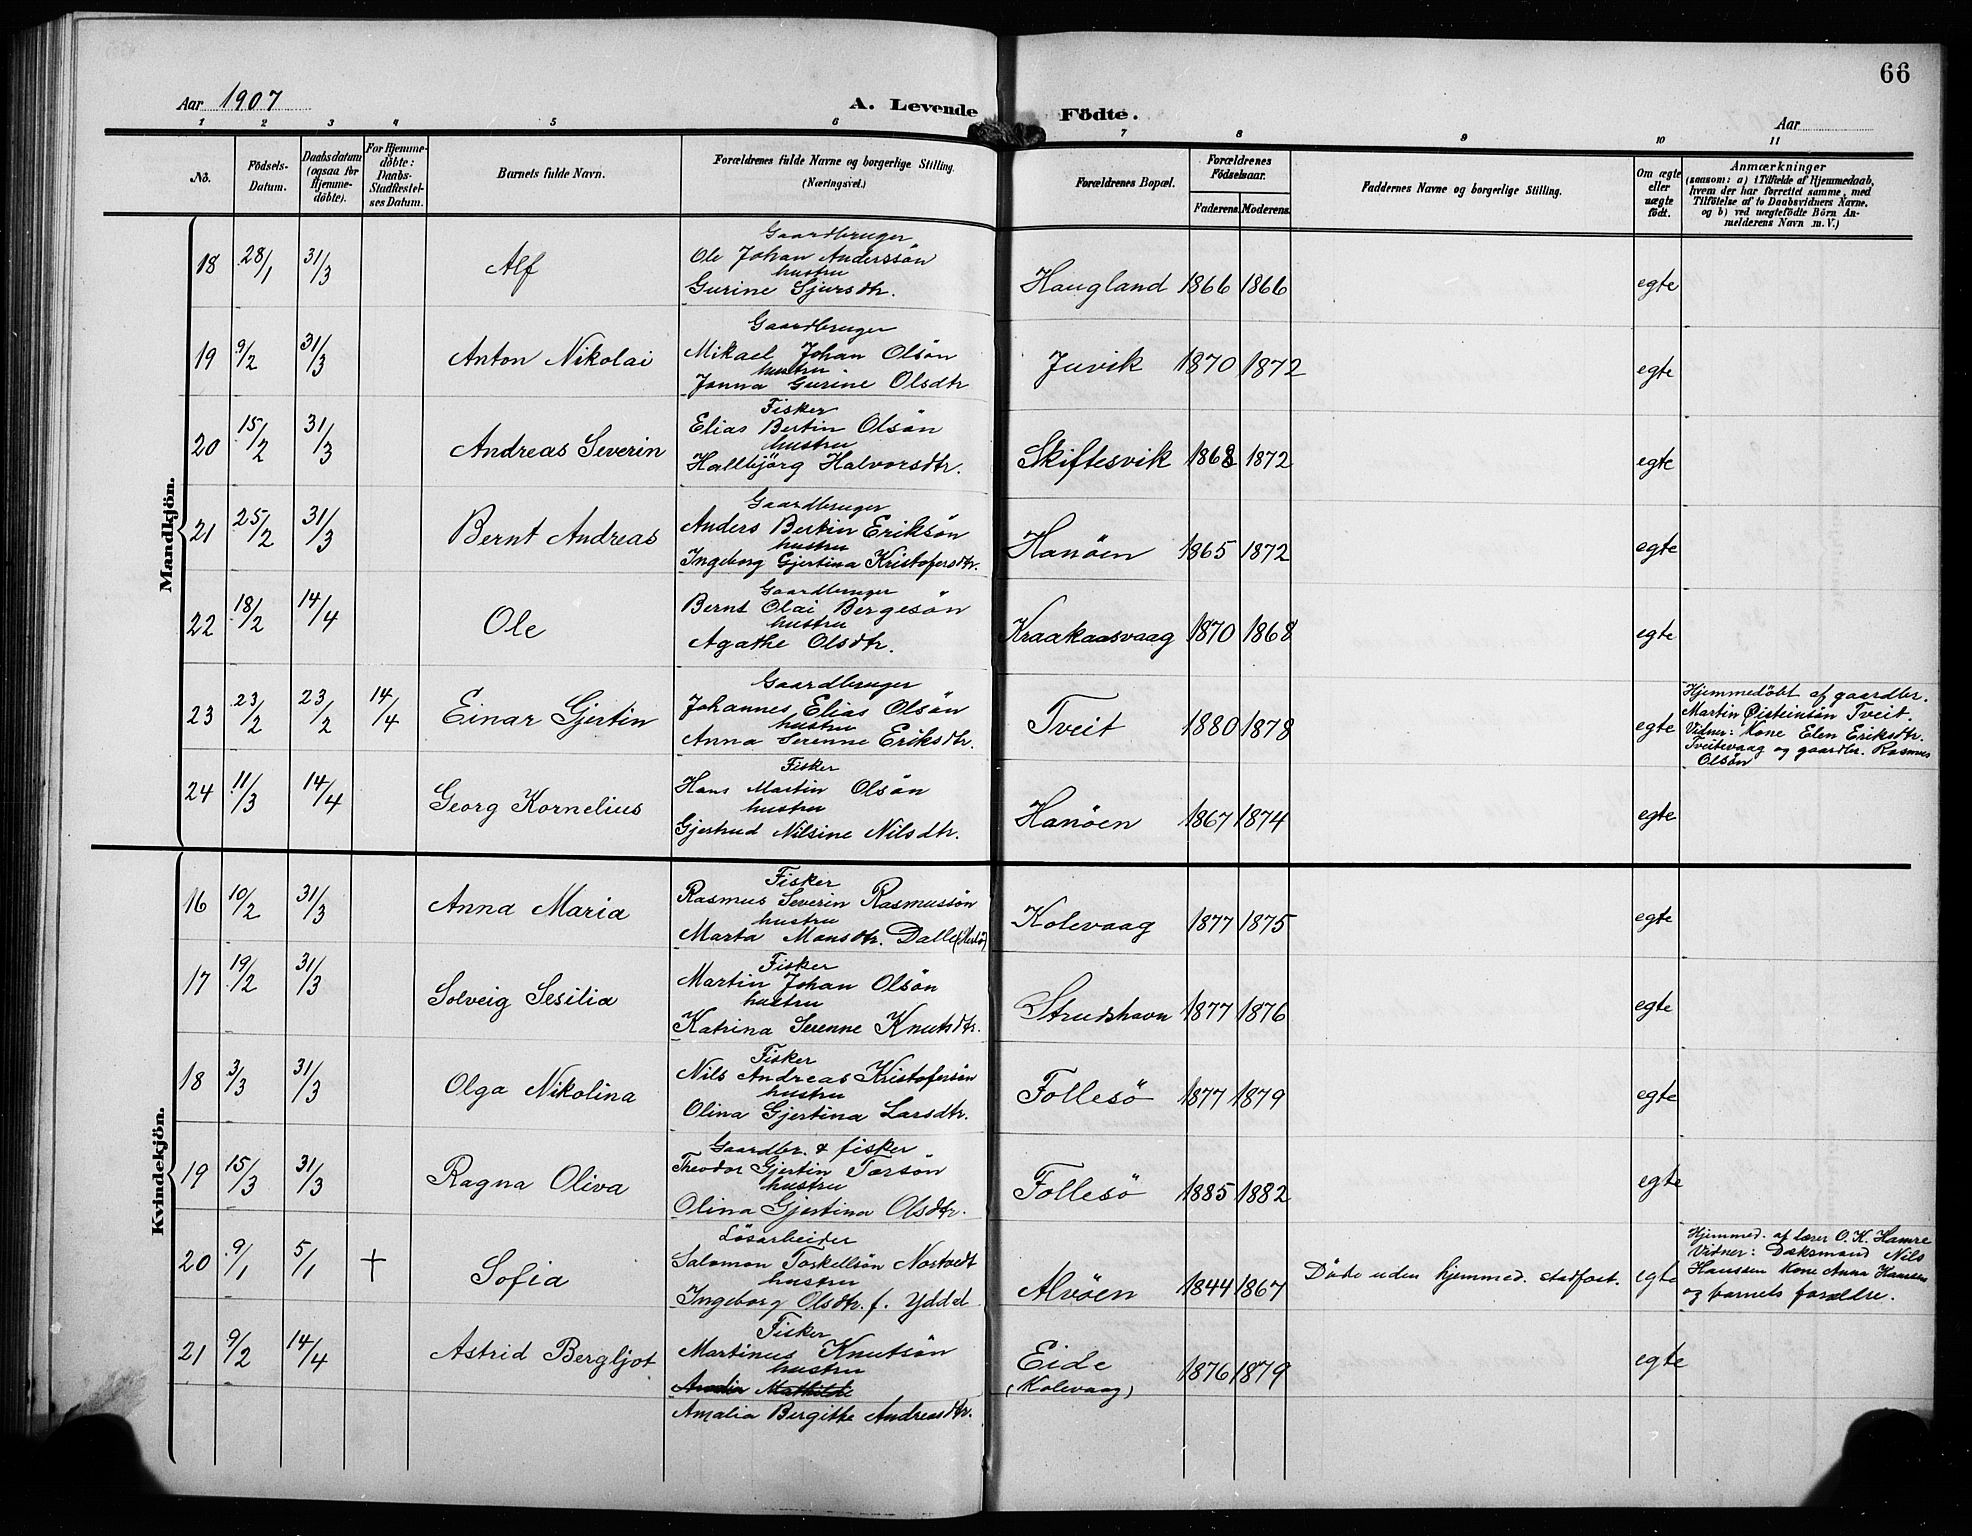 66
Aar 1907 A. Levende Födte. Aar
1 2 3 4 5 6 7 8 9 10 11
No. Födsels-Datum. Daabsdatum (ogsaa for Hjemme-döbte). For Hjemme-döbte: Daabs-Stadfæstel-ses Datum. Barnets fulde Navn. Forældrenes fulde Navne og borgerlige Stilling. (Næringsvei.) Forældrenes Bopæl. Forældrenes Födselsaar. Faderens. Moderens. Faddernes Navne og borgerlige Stilling. Om ægte eller uægte födt. Anmærkninger (saasom: a) i Tilfælde af Hjemmedaab, hvem der har forrettet samme, med Tilföielse af to Daabsvidners Navne, og b) ved uægtefödte Börn An-melderens Navn m. V.)
Mandkjön.
Gaardbruger
18 28/1 31/3 Alf Ole Johan Anderssön
hustru
Gurine Sjursdtr. Haugland 1866 1866 egte
Gaardbruger
19 9/2 31/3 Anton Nikolai Mikael Johan Olsön
hustru
Janna Gurine Olsdtr Juvik 1870 1872 egte
Fisker
20 15/2 31/3 Andreas Severin Elias Bertin Olsön
hustru
Hallbjörg Halvorsdtr. Skiftesvik 1868 1872 egte
Gaardbruger
21 25/2 31/3 Bernt Andreas Anders Bertin Eriksön
hustru
Ingeborg Gjertina Kristofersdtr. Hanöen 1865 1872 egte
Gaardbruger
22 18/2 14/4 Ole Bernt Olai Bergesön
hustru
Agathe Olsdtr. Kraakaasvaag 1870 1868 egte
Gaardbruger
23 23/2 23/2 14/4 Einar Gjertin Johannes Elias Olsön
hustru
Anna Serenne Eriksdtr. Tveit 1880 1878 egte
Hjemmedöbt af gaardbr.
Martin Öisteinsön Tveit.
Vidner: Kone Elen Eriksdtr.
Tveitevaag og gaardbr. Rasmus
Olsön
Fisker
24 11/3 14/4 Georg Kornelius Hans Martin Olsön
hustru
Gjertrud Nilsine Nilsdtr. Hanöen 1867 1874 egte
Kvindekjön.
Fisker
16 10/2 31/3 Anna Maria Rasmus Severin Rasmussön
hustru
Marta Monsdtr. Dalle Kolevaag 1877 1875 egte
Fisker
17 19/2 31/3 Solveig Sesilia Martin Johan Olsön
hustru
Katrina Serenne Knutsdtr. Strudshavn 1877 1876 egte
Fisker
18 3/3 31/3 Olga Nikolina Nils Andreas Kristofersön
hustru
Olina Gjertina Larsdtr. Follesö 1877 1879 egte
Gaardbr. & fisker
19 15/3 31/3 Ragna Oliva Theodor Gjertin Torsön
hustru
Olina Gjertina Olsdtr. Follesö 1885 1882 egte
Lösarbeider
20 9/1 5/1 + Sofia Salomon Torkellsön Nortvedt
hustru
Ingeborg Olsdtr. f. Yddal Alvöen 1844 1867 Döde uden hjemmed. stadfæst. egte
Hjemmed. af lærer O. K. Hamre
Vidner: Dæksmand Nils
Hanssen Kone Anna Hanssen
og barnets forældre.
Fisker
21 9/2 14/4 Astrid Bergljot Martinus Knutsön
hustru
Mathilde
Amalia Bergitte Andreasdtr. Eide
(Kolevaag) 1876 1879 egte